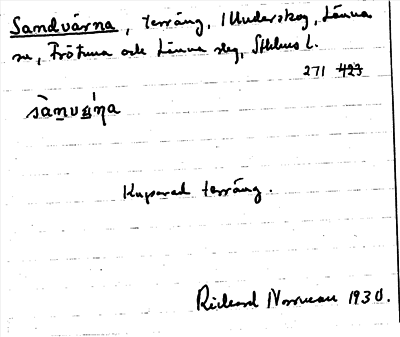 Sandvärna, terräng, i Underskog, Länna
sn, Frötuna och Länna slg, Sthlms l.
271 423
Kuperad terräng.
Rickard 1930.